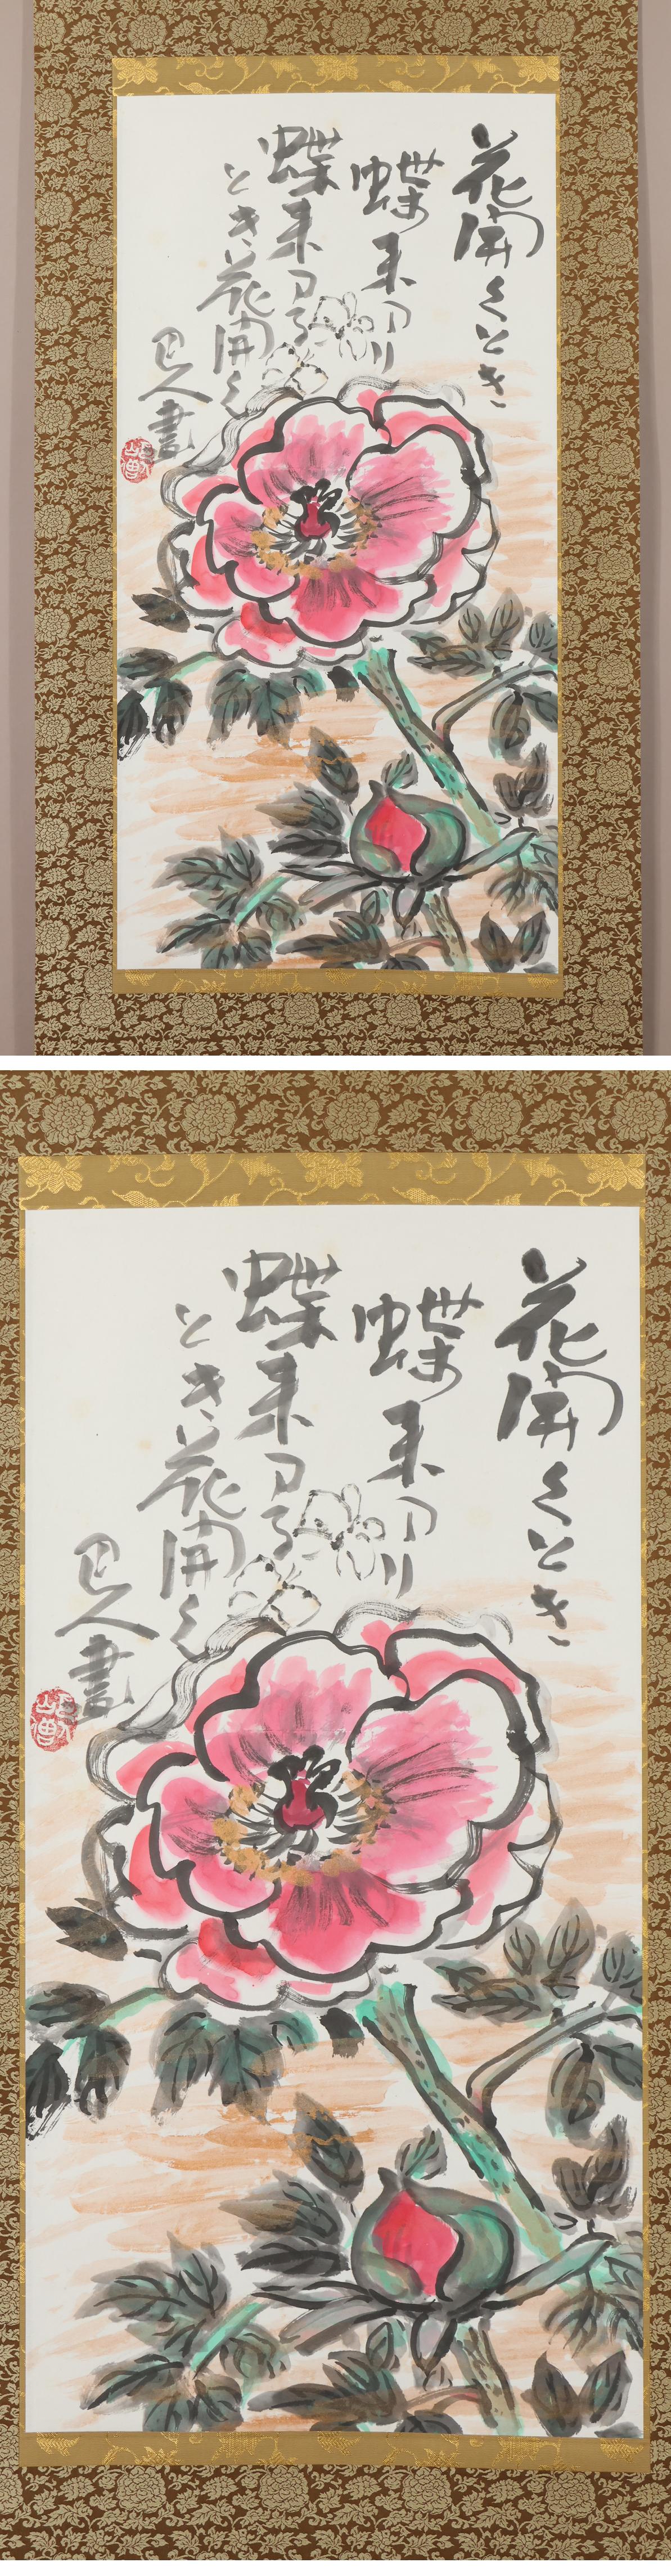 花開くとき
蝶来たり
蝶来たる
とき花開く
巴人畫
花開くとき
蝶来たり
蝶来たる
とき花開く
巴人畫